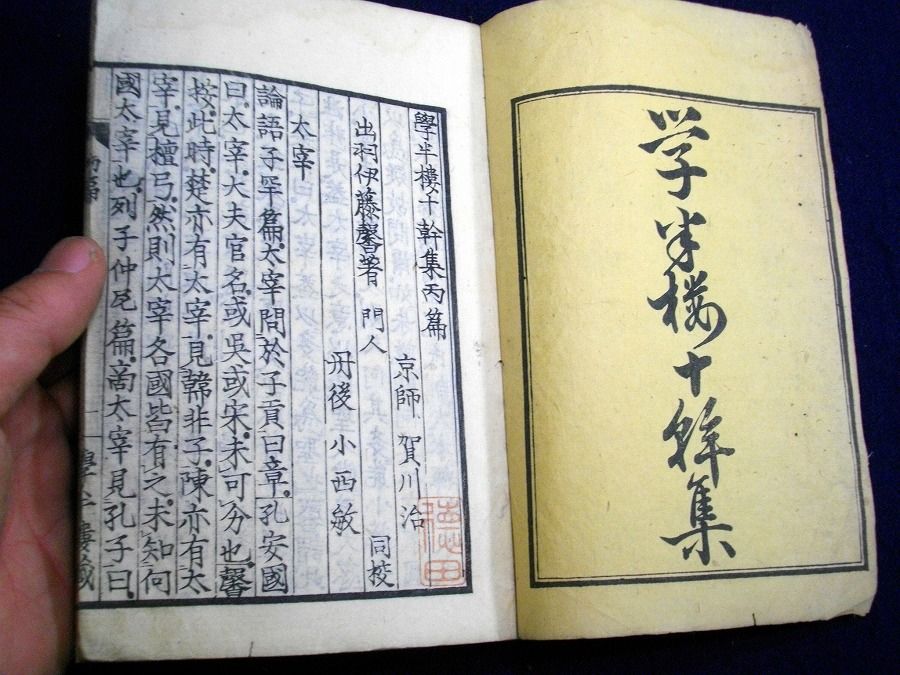 学半楼十幹集
學半樓十幹集丙篇
出羽伊藤馨著 門人 京師 賀川治 丹後 小西敏 同挍
太宰
論語子罕篇太宰問於子貢曰章孔安國
曰太宰大夫官名或吳或宋未可分也馨
按此時楚亦有太宰見韓非子陳亦有太
宰見檀弓然則太宰各國皆有之未知何
國太宰也列子仲尼篇商太宰見孔子曰
丙篇
學半樓藏